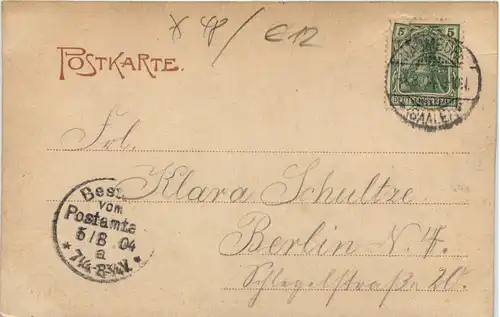 €12
5 5
POSTKARTE.
DEUTSCHES REICH
(SAALE)
Frl.
Klara Schultze
Berlin N. 4.
Schlegelstraße 20.
Best.
vom
Postamte
5/8 04
a
* 7¼-8¾V. *